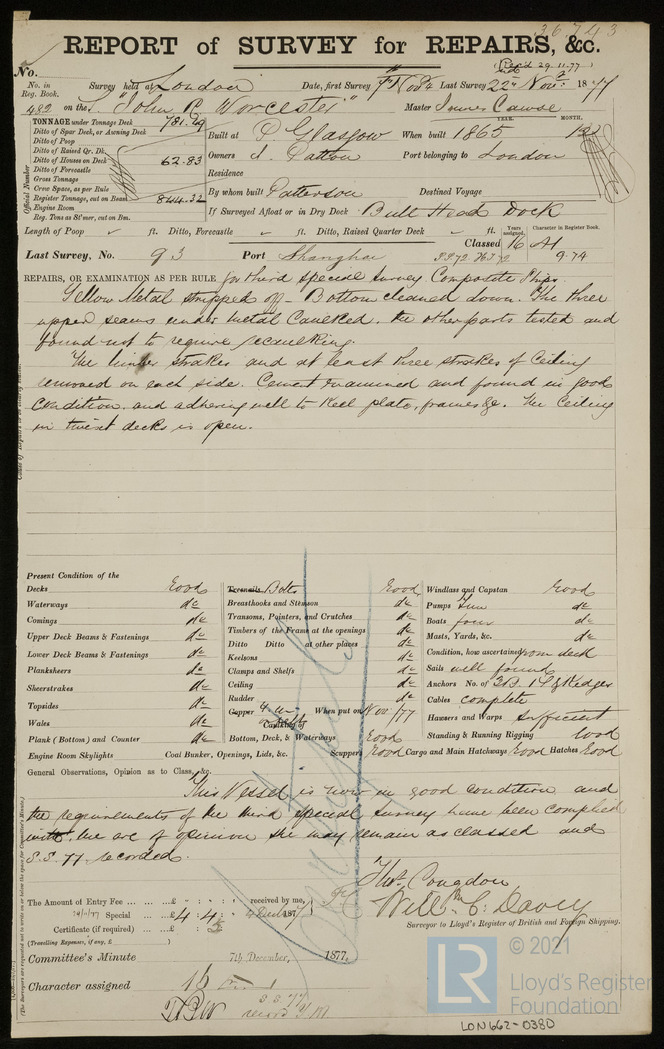 36743
REPORT of SURVEY for REPAIRS, &c.
(Rec'd 29.11.77)
No.
No. in Reg. Book. Survey held at London Date, first Survey 7th Nov Last Survey 22nd Nov. 1877
482 on the "John R Worcester" Master James Cawse
TONNAGE under Tonnage Deck 781.49
Ditto of Spar Deck, or Awning Deck
Ditto of Poop
Ditto of Raised Qr. Dk.
Ditto of Houses on Deck 62.83
Ditto of Forecastle
Gross Tonnage
Crew Space, as per Rule
Register Tonnage, cut on Beam 844.32
Engine Room
Reg. Tons as St'mer, cut on Bm.
Official Number
YEAR. MONTH.
Built at P Glasgow When built 1865 12
Owners J. Patton Port belonging to London
Residence
By whom built Patterson Destined Voyage
If Surveyed Afloat or in Dry Dock Bull Head Dock
Length of Poop ft. Ditto, Forecastle ft. Ditto, Raised Quarter Deck ft.
Years assigned. Character in Register Book.
Classed 16 A1
Last Survey, No. 93 Port Shanghai 9.74
REPAIRS, OR EXAMINATION AS PER RULE for third special survey Composite Ships.
Yellow Metal stripped off - Bottom cleaned down. The three
upper seams under metal Caulked. the other parts tested and
found not to require recaulking.
The limber strakes and at least three strakes of Ceiling
removed on each side. Cement examined and found in good
condition, and adhering well to Keel plate, frames &c. The Ceiling
in twixt decks is open.
Present Condition of the
Decks Good
Waterways do
Comings do
Upper Deck Beams & Fastenings do
Lower Deck Beams & Fastenings do
Planksheers do
Sheerstrakes do
Topsides do
Wales do
Plank (Bottom) and Counter do
Engine Room Skylights
Treenails Bolts Good
Breasthooks and Stemson do
Transoms, Pointers, and Crutches do
Timbers of the Frame at the openings do
Ditto Ditto at other places do
Keelsons do
Clamps and Shelfs do
Ceiling do
Rudder do
Copper When put on Nov/77
Caulking of
Bottom, Deck, & Waterways Good
Coal Bunker, Openings, Lids, &c. Scuppers Good
Windlass and Capstan Good
Pumps do
Boats four do
Masts, Yards, &c. do
Condition, how ascertained from deck
Sails well found
Anchors No. of 3B. 1S & Kedges
Cables complete
Hawsers and Warps sufficient
Standing & Running Rigging Good
Cargo and Main Hatchways Good Hatches Good
General Observations, Opinion as to Class, &c.
This Vessel is now in good condition and
the requirements of the third special survey have been complied
with. We are of opinion she may remain as classed and
S.S. 77 recorded.
Certificate
Thos. Congdon
Willm. C. Davey
Surveyor to Lloyd's Register of British and Foreign Shipping.
The Amount of Entry Fee ... £ : : received by me,
Special ... £ 4 : 4 : 187
Certificate (if required) ... £
(Travelling Expenses, if any, £ )
Committee's Minute 7th December, 1877.
Character assigned 16
S S 77
(The Surveyors are requested not to write on or below the space for Committee's Minute.)
© 2021
LR
Lloyd's Register
Foundation
LON662-0380